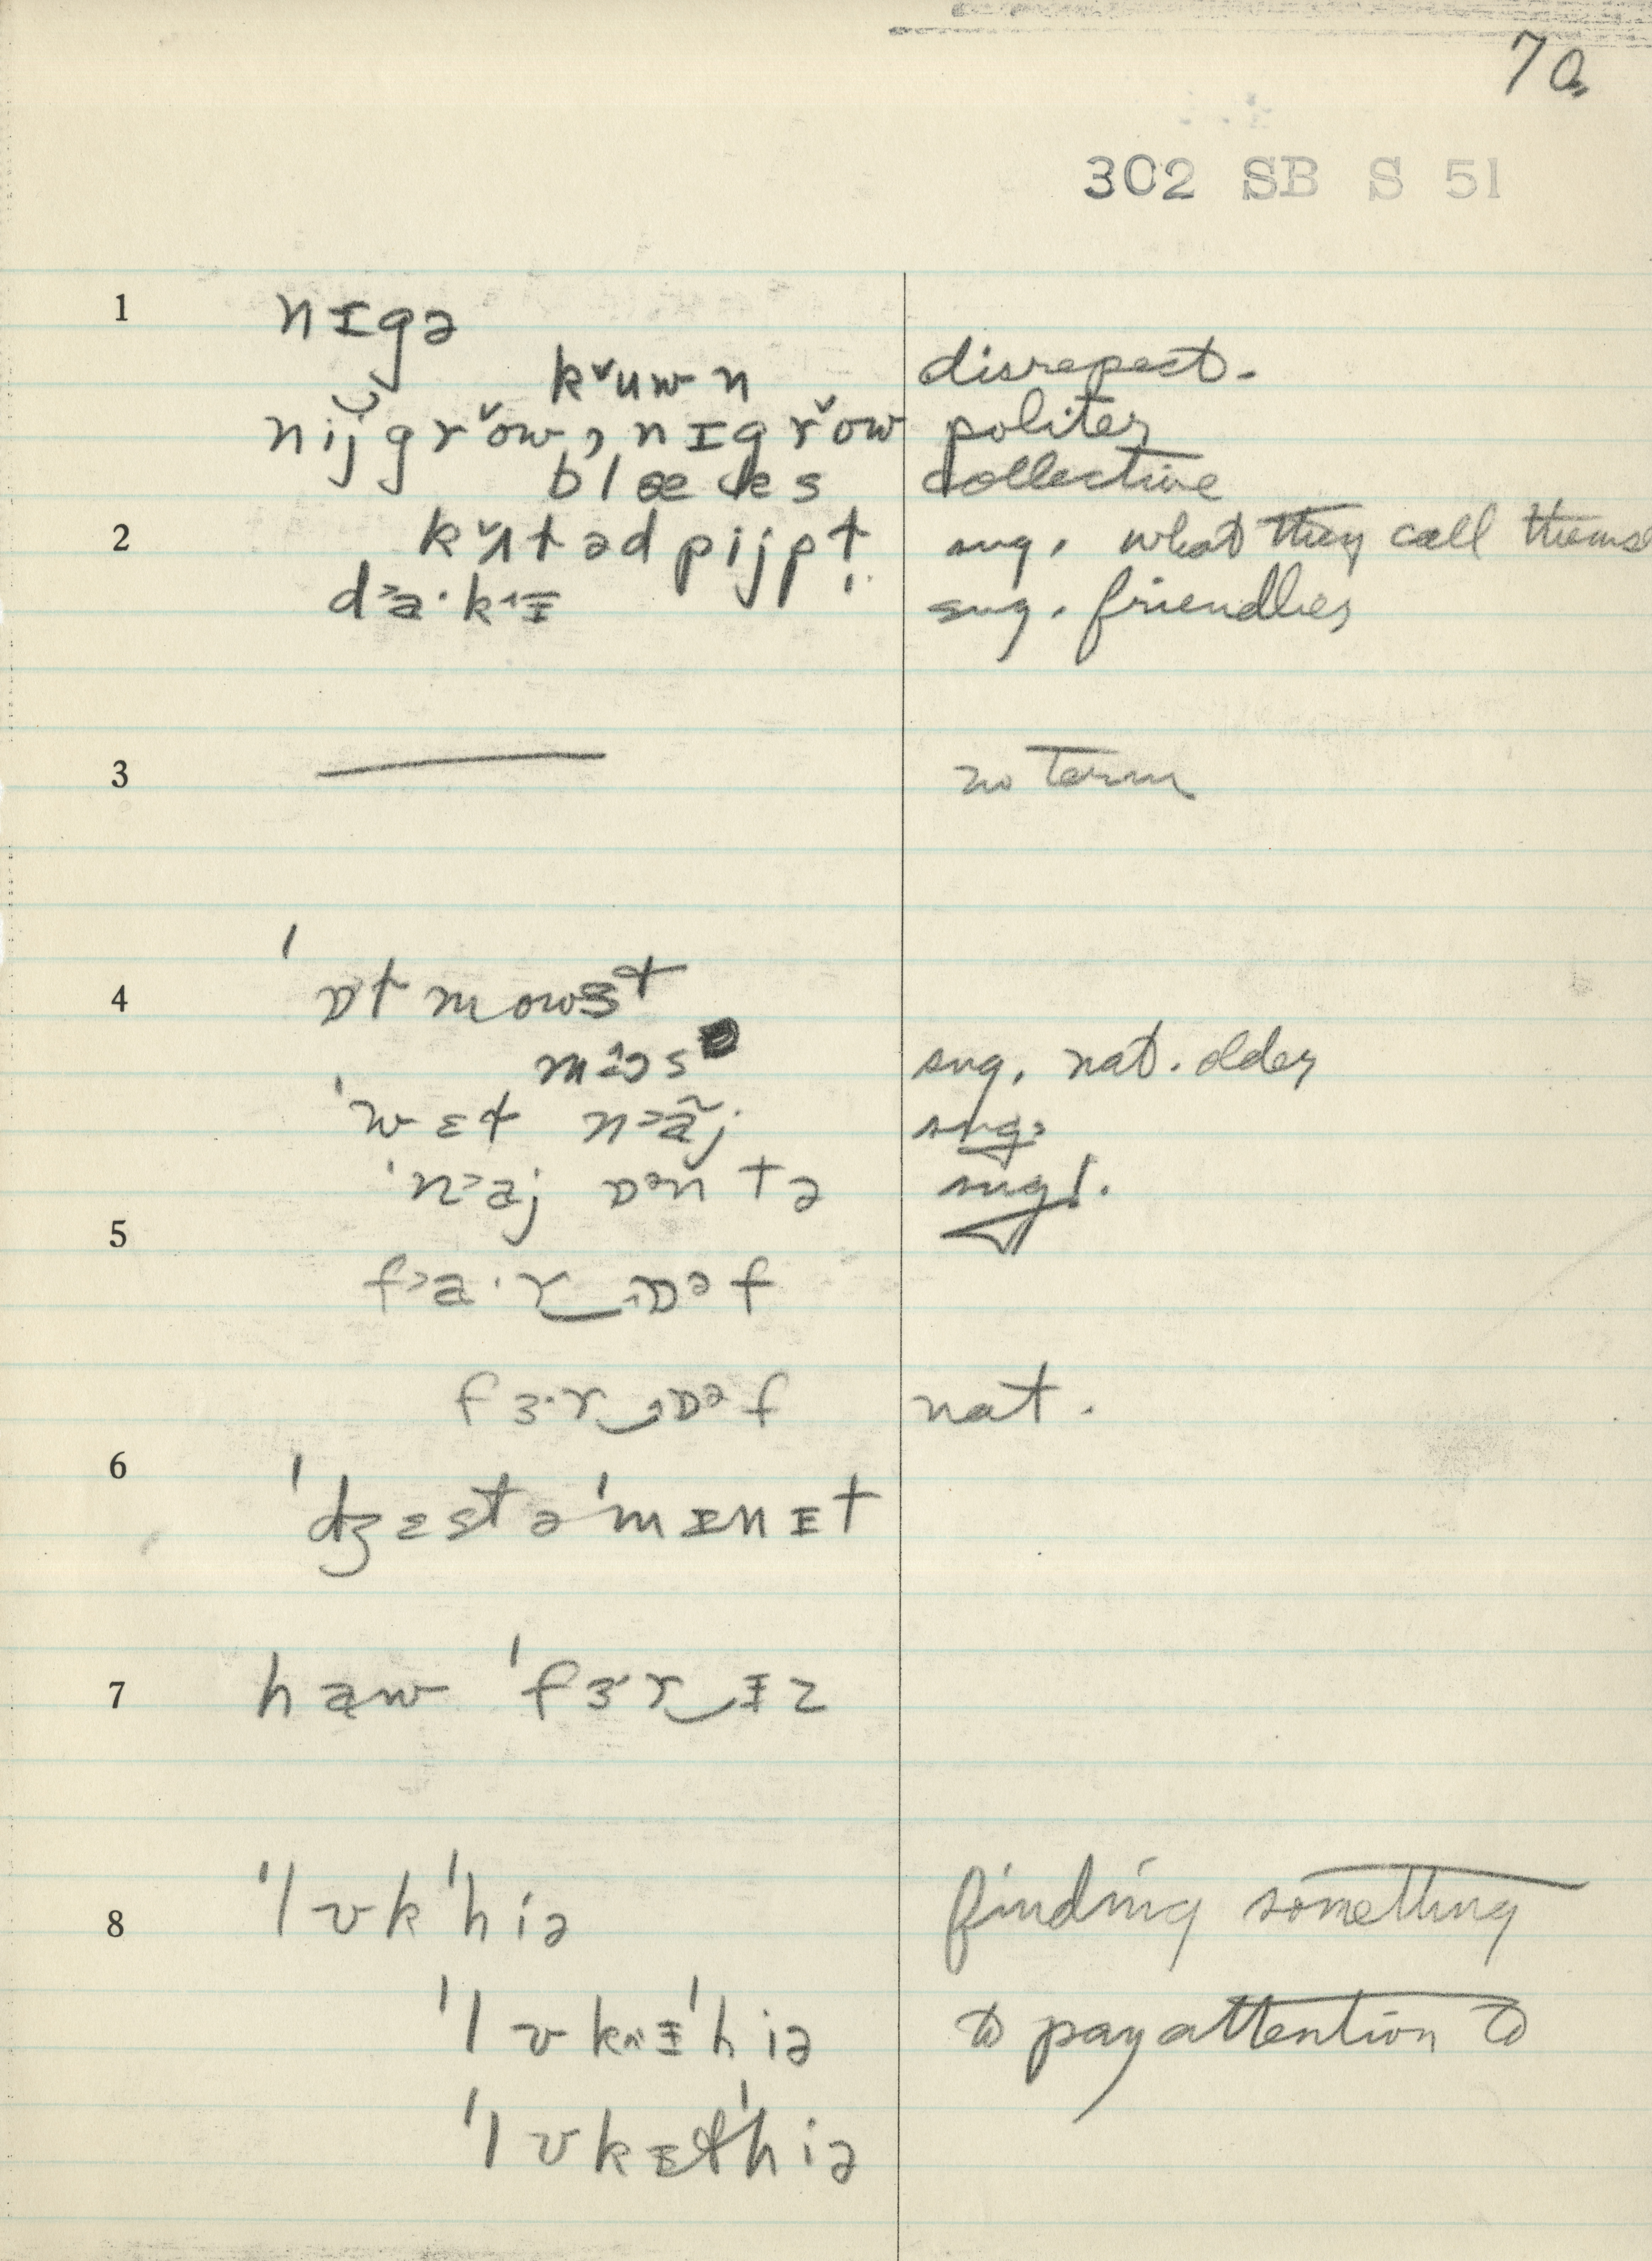 70.
302 SB S 51
1 nɪgə
kˇuwn disrepect.
nijgrˇow, nɪgrˇow politer
blæks collective
2 kˇʌtədpijpt sug. what they call thems
d˃a·k˄ɪ sug. friendlier
3 —— no term
4 ˈɒtmowst
m sug. nat. older
ˈwɛt n˃ãj sug.
ˈn˃aj tə sug!.
5 f˃a·r‿ɒᵊf
fɜ·r‿ɒᵊf nat.
6 ˈdʒɛstəˈmɪnɪt
7 haw ˈfɜ·r‿ɪz
8 ˈlʊkˈhiə finding something
ˈlʊk˄ɪˈhiə to pay attention to
ˈlʊkɪtˈhiə